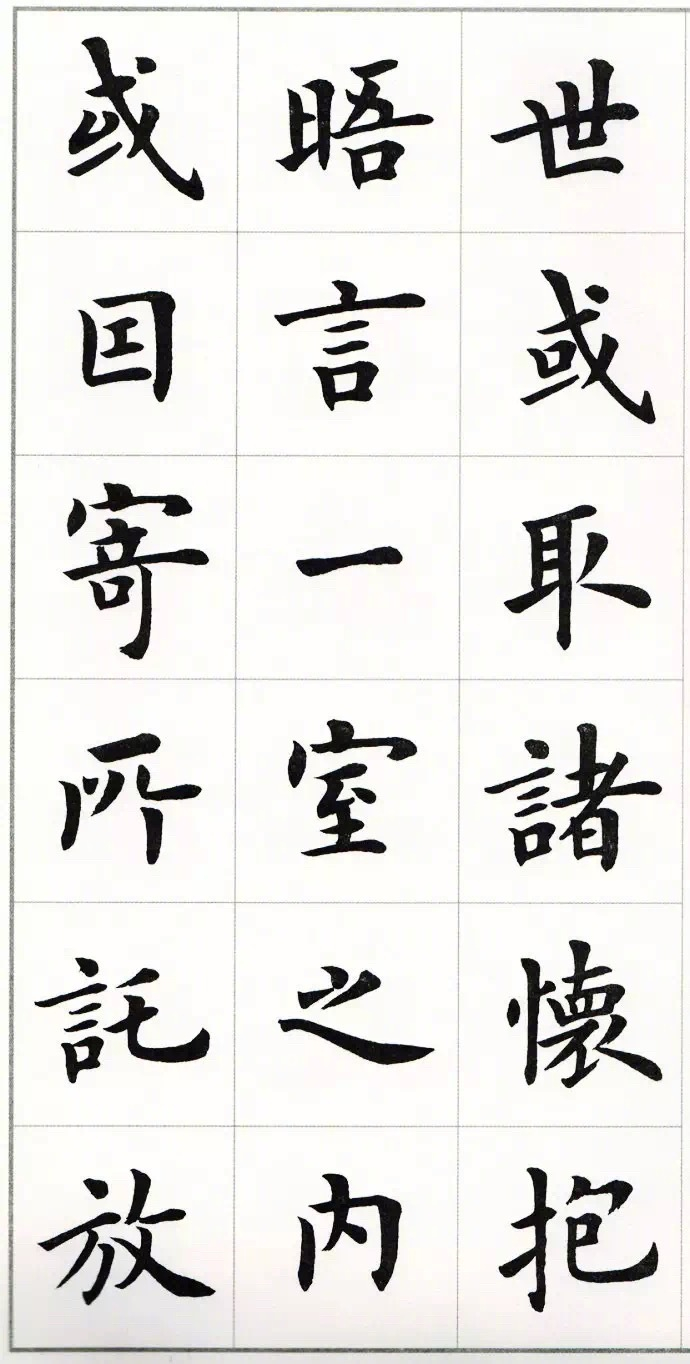 世或取諸懷抱
晤言一室之內
或因寄所託放